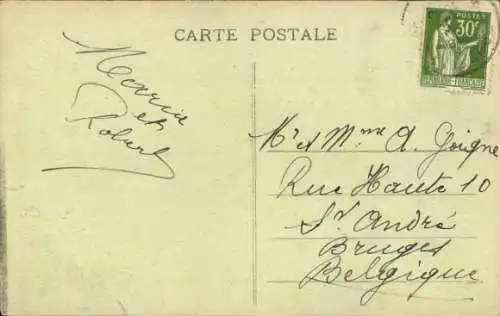 CARTE POSTALE
POSTES
30c
Marie
et
Robert
Mr & Mme A. Goigne
Rue Haute 10
St André
Bruges
Belgique